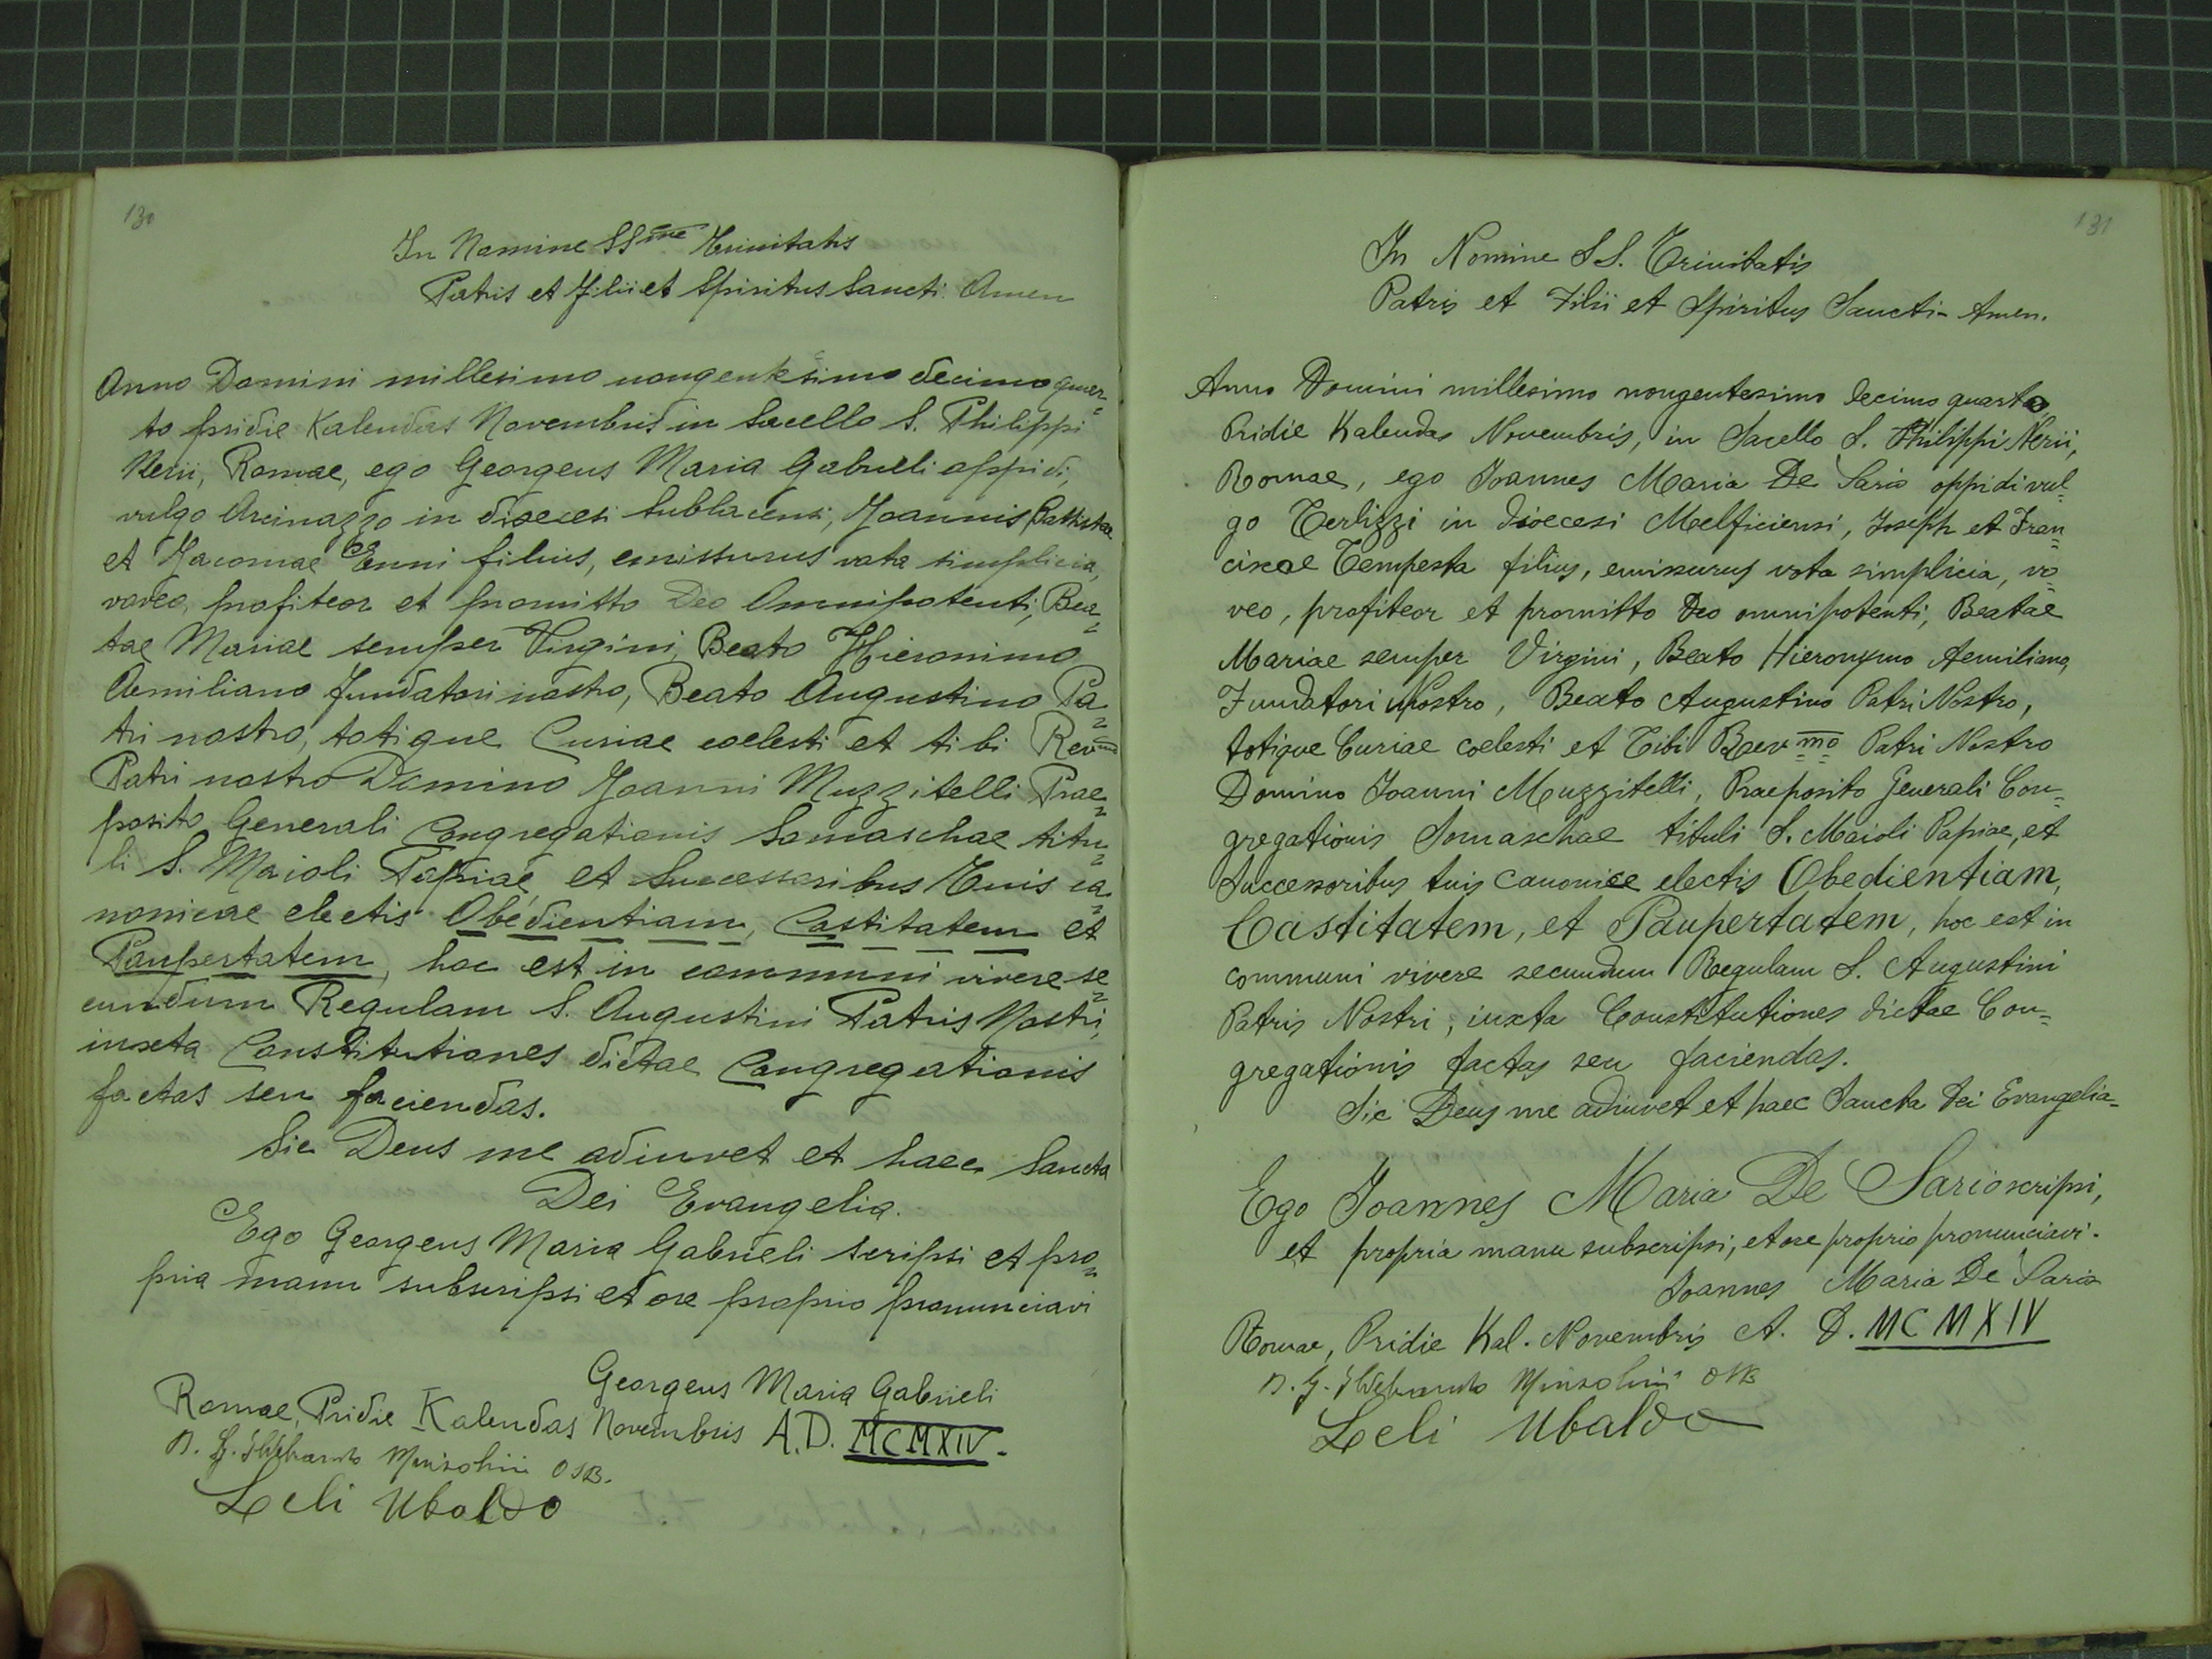 130
In Nomine SSmae Trinitatis
Patris et Filii et Spiritus Sancti. Amen
Anno Domini millesimo nongentesimo decimo quar=
to pridie Kalendas Novembris in Sacello S. Philippi
Nerii, Romae, ego Georgeus Maria Gabrieli oppidi,
vulgo Arcinazzo in dioecesi Sublacensi, Joannis Battistae
et Jacomae Enni filius, emissurus vota simplicia,
voveo, profiteor et promitto Deo Omnipotenti, Bea=
tae Mariae semper Virgini, Beato Hieronimo
Aemiliano fundatori nostro, Beato Augustino Pa=
tri nostro, totique Curiae coelesti et tibi Revmo
Patri nostro Domino Joanni Muzzitelli Prae=
posito Generali Congregationis Somaschae titu=
li S. Maioli Papiae, et Successoribus Tuis ca=
nonicae electis Obedientiam, Castitatem et
Paupertatem, hoc est in communi vivere se=
cundum Regulam S. Augustini Patris Nostri,
iuxta Constitutiones dictae Congregationis
factas seu faciendas.
Sic Deus me adiuvet et haec Sancta
Dei Evangelia.
Ego Georgeus Maria Gabrieli scripsi et pro=
pria manu subscripsi et ore proprio pronunciavi
Georgeus Maria Gabrieli
Romae, Pridie Kalendas Novembris A.D. MCMXIV.
D. G. Ildebrando OSB.
Leli Ubaldo
131
In Nomine SS. Trinitatis
Patris et Filii et Spiritus Sancti- Amen.
Anno Domini millesimo nongentesimo decimo quarto,
Pridie Kalendas Novembris, in Sacello S. Philippi Nerii,
Romae, ego Joannes Maria De Sario oppidi vul=
go Terlizzi in dioecesi Melficiensi, Joseph et Fran=
ciscae Tempesta filius, emissurus vota simplicia, vo=
veo, profiteor et promitto Deo omnipotenti, Beatae
Mariae semper Virgini, Beato Hieronymo Aemiliano,
Fundatori Nostro, Beato Augustino Patri Nostro,
totique Curiae coelesti et Tibi Revmo Patri Nostro
Domino Joanni Muzzitelli, Praeposito Generali Con=
gregationis Somaschae tituli S. Maioli Papiae, et
Successoribus tuis canonice electis Obedientiam,
Castitatem, et Paupertatem, hoc est in
communi vivere secundum Regulam S. Augustini
Patris Nostri, iuxta Constitutiones dictae Con=
gregationis factas seu faciendas.
Sic Deus me adiuvet et haec Sancta Dei Evangelia-
Ego Joannes Maria De Sario scripsi,
et propria manu subscripsi, et ore proprio pronunciavi.
Joannes Maria De Sario
Romae, Pridie Kal. Novembris A. D. MCMXIV
D. G. Ildebrando OSB
Leli Ubaldo